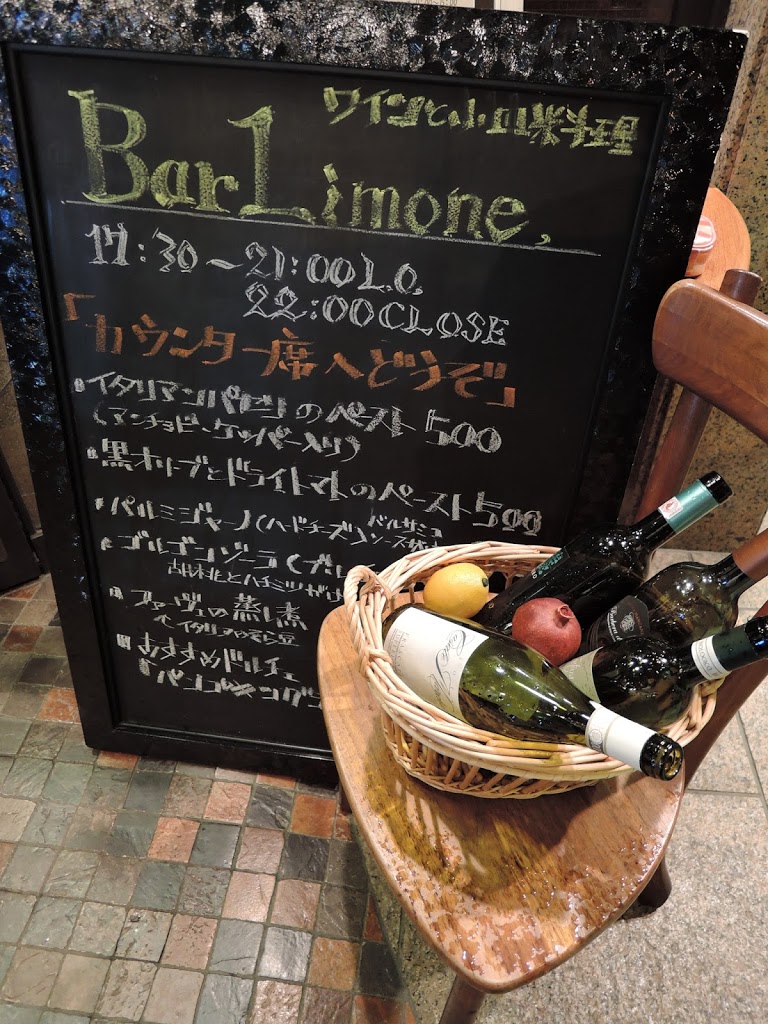 ワインと小皿料理
Bar Limone,
17:30～21:00 L.O.
22:00 CLOSE
「カウンター席へどうぞ」
イタリアンパセリのペースト 500
(アンチョビ・ケッパー入り)
黒オリーブとドライトマトのペースト 500
パルミジャーノ(ハードチーズ) バルサミコ
ソース
ゴルゴンゾーラ(ブルー
胡桃とハチミツ
ファーヴェの蒸し煮
イタリアのそら豆
おすすめドルチェ